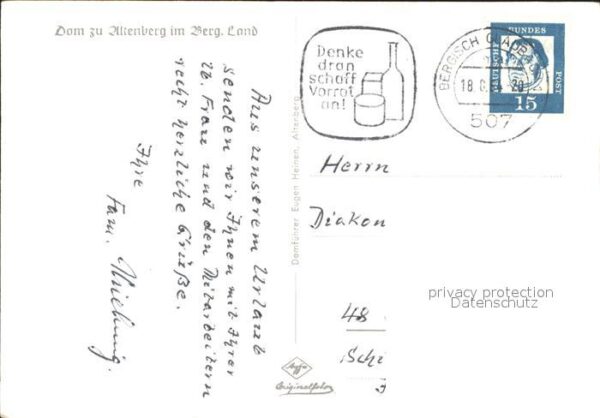 Dom zu Altenberg im Berg. Land
Aus unserem Urlaub
senden wir Ihnen mit Ihrer
lb. Frau und den Mitarbeitern
recht herzliche Grüße.
Ihre
Fam.
Domführer Eugen Heinen, Altenberg
Agfa
Originalfoto
Denke
dran
schaff
Vorrat
an!
BERGISCH GLADBACH
18.
20
507
DEUTSCHE BUNDESPOST
15
Herrn
Diakon
48
Schi
privacy protection
Datenschutz